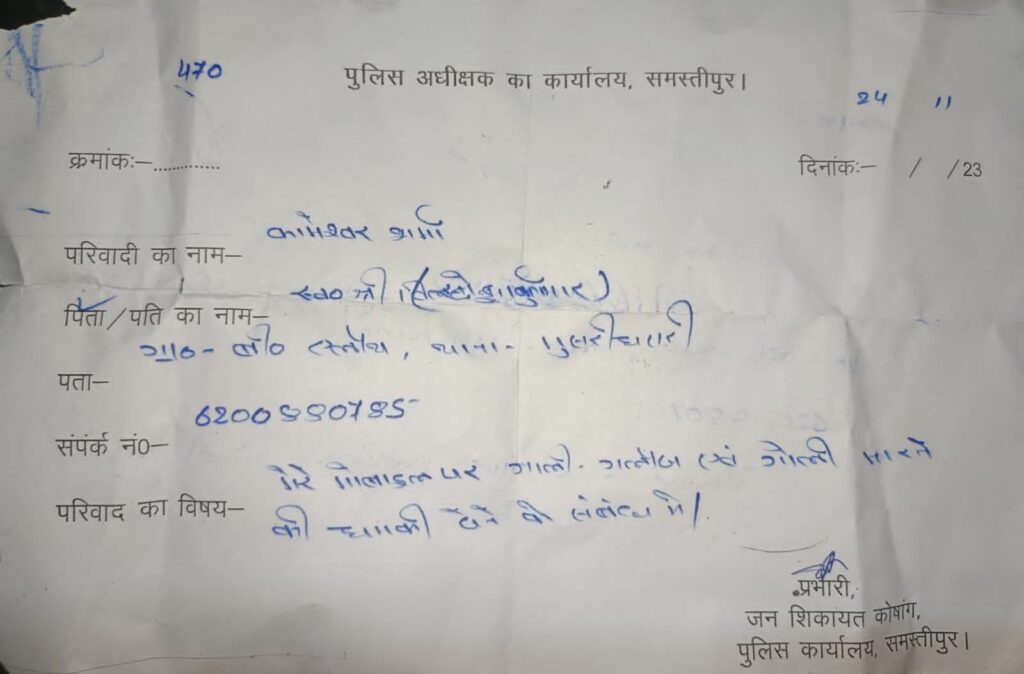 470
पुलिस अधीक्षक का कार्यालय, समस्तीपुर।
24 11
क्रमांकः–.............
दिनांकः– / /23
कामेश्वर शर्मा
परिवादी का नाम–
स्व० श्री
पिता/पति का नाम–
ग्रा०- थाना-
पता–
संपंर्क नं०–
मेरे मोबाइल पर गाली-गलौज एवं गोली मारने
परिवाद का विषय–
की धमकी देने के संबंध में।
प्रभारी,
जन शिकायत कोषांग,
पुलिस कार्यालय, समस्तीपुर।